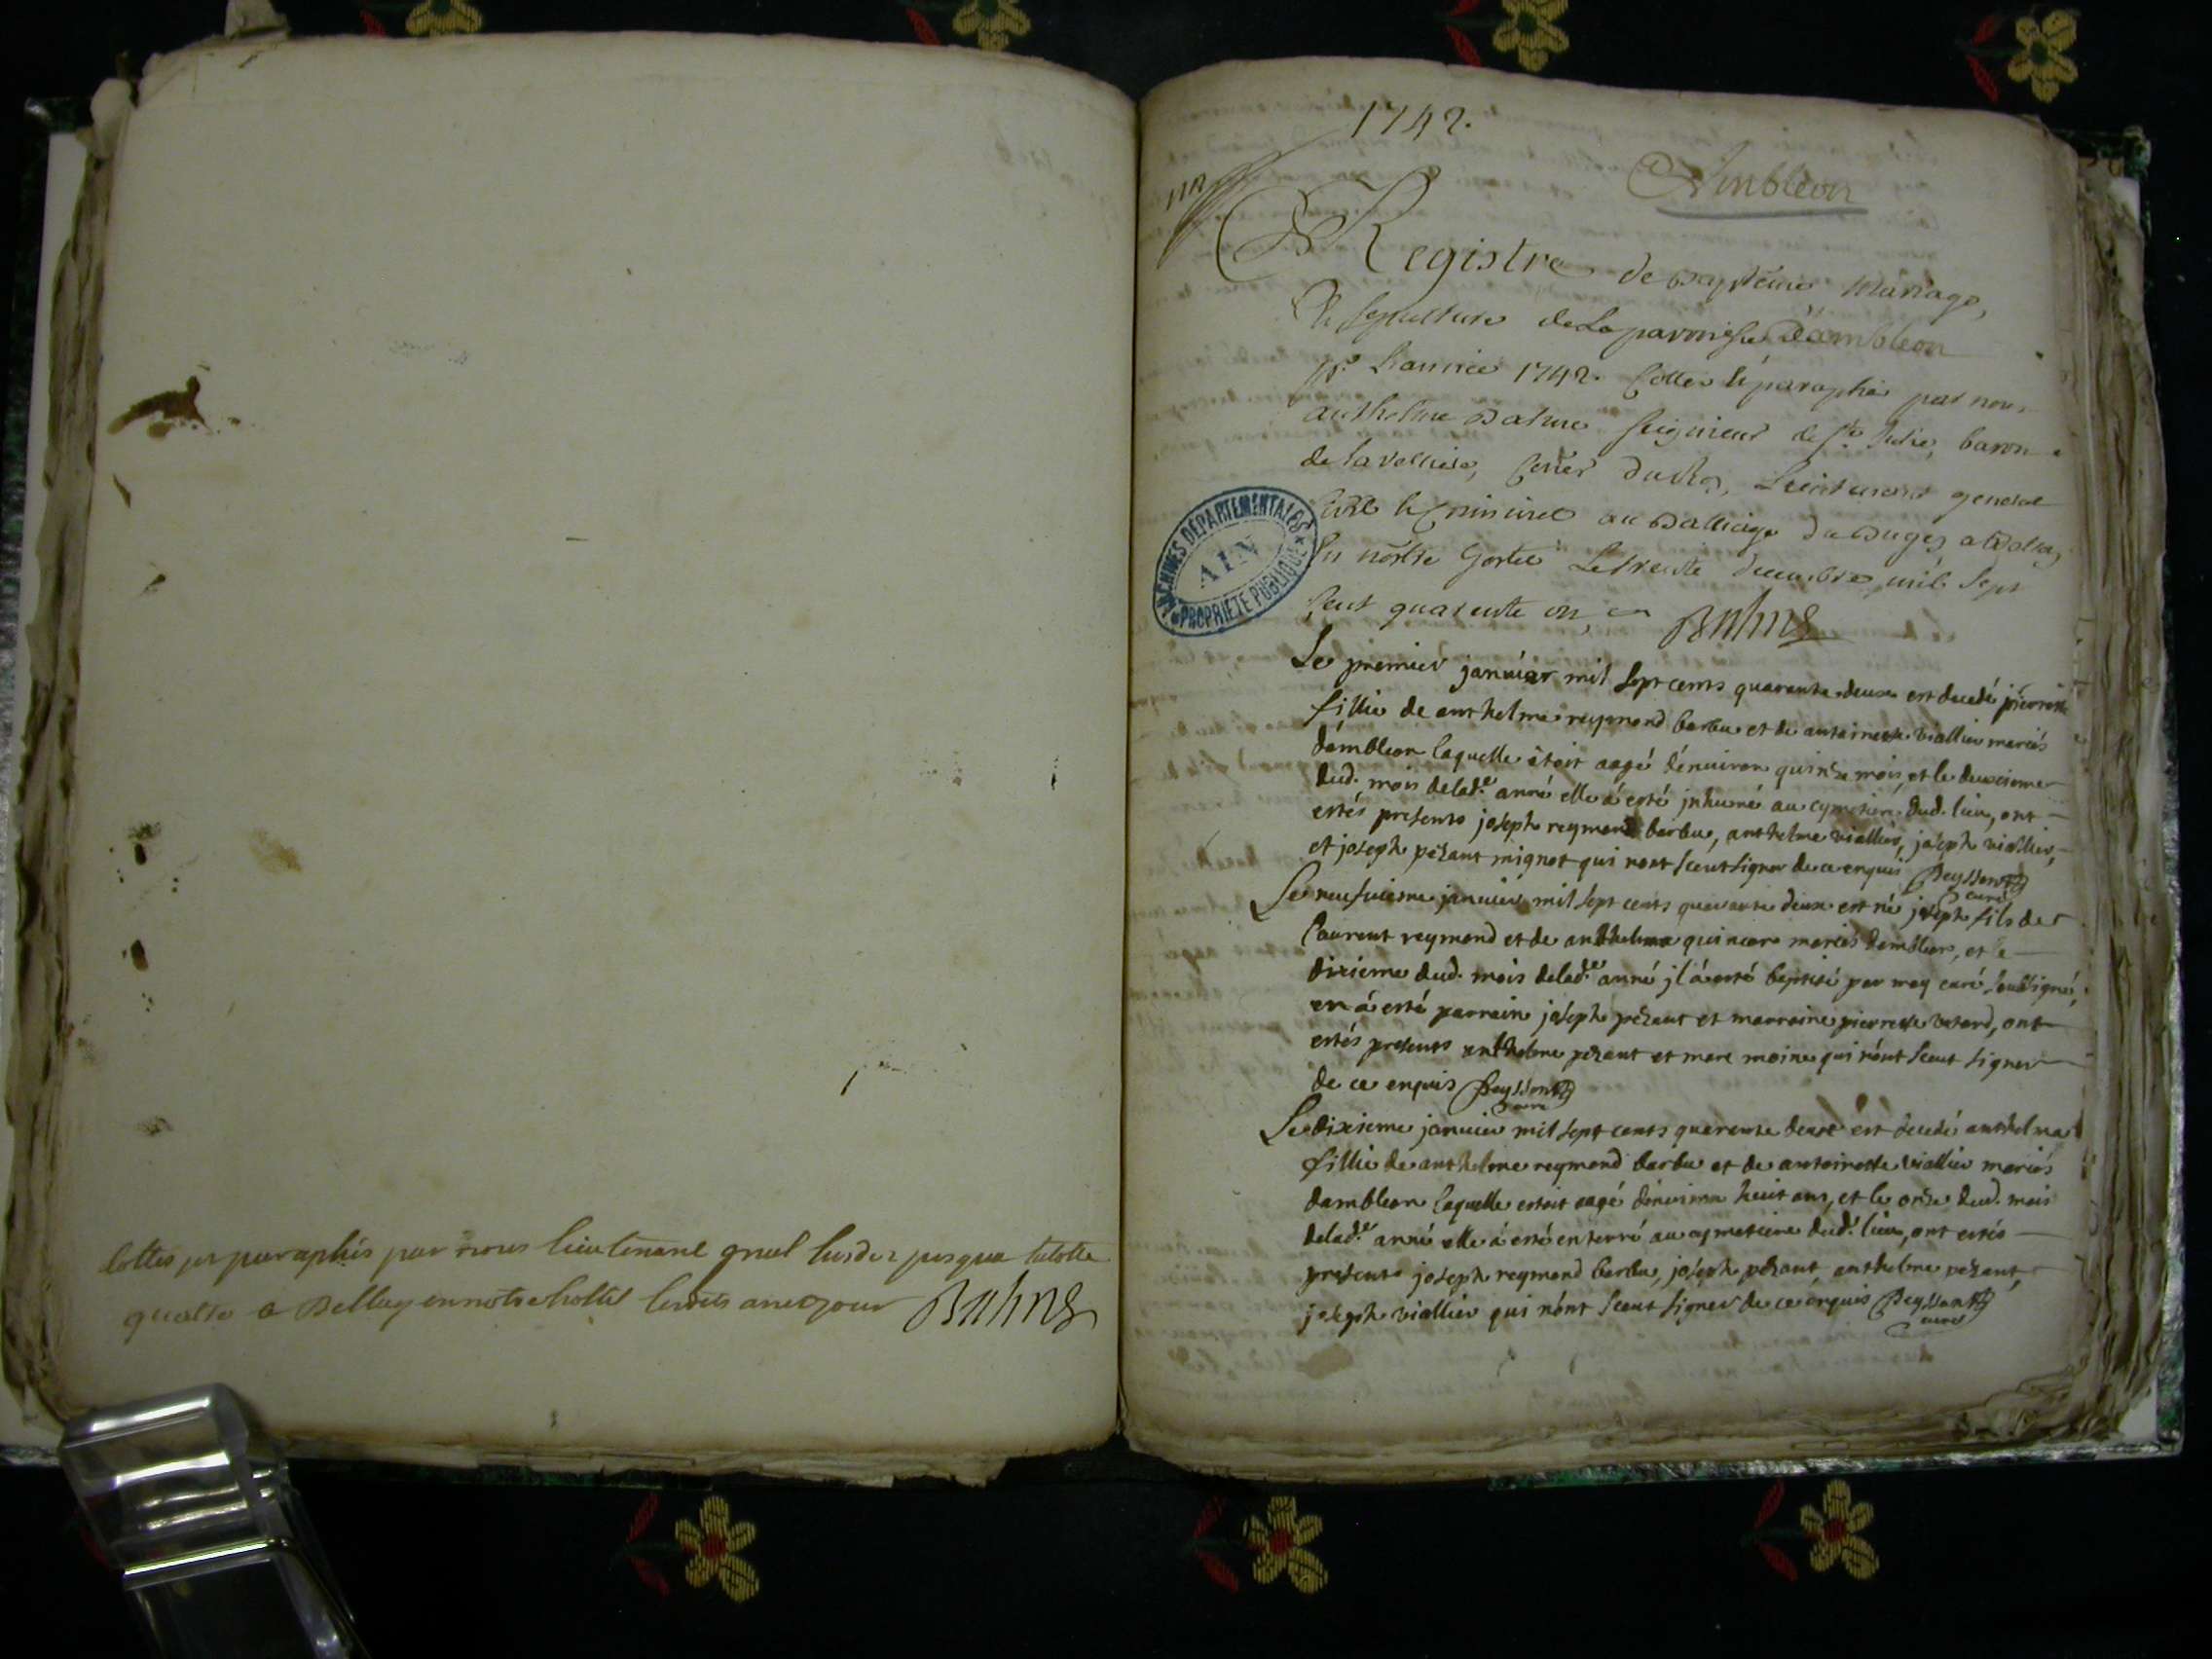 Cottés et paraphés par nous lieutenant gnral susdit jusqua
quatre a Belley en notre hottel lesdits an et jour Balme
1742.
Ambleon
Registre de Baptême, Mariage,
Et sepulture de La parroisse d'ambléon
pr. L'année 1742. Cottés et paraphés par nous
anthelme Balme seigneur de ste. Julie, baron
general
Civil et Criminel au Balliage du Bugey a Belley
En nostre hostel Le trente decembre mil sept
Cent quarente un, Balme
ARCHIVES DEPARTEMENTALES
AIN
PROPRIÉTÉ PUBLIQUE
Le premier januier mil sept cents quarante deux est decedé pierrette
fillie de anthelme reymond barbu et de antoinette viallier mariés
d'ambleon laquelle étoit aagé d'enuiron quinze mois, et le deuxieme
dud. mois de lad.e anné elle á esté jnhumé au cymetiere dud. lieu, ont
estés presents joseph reymond barbu, anthelme viallier, joseph viallier,
et joseph pezant mignot qui nont sceut signer de ce enquis Peysson
curé
Le neufuiesme januier mil sept cents quarante deux est né joseph fils de
Laurent reymond et de anthelma mariés dambleon, et le
dixieme dud. mois de lad.e anné jl á esté baptisé par moy curé soussigné,
en á esté parrain joseph pezant et marraine pierrette, ont
estés presents anthelme pezant et marc moine qui nont sceut signer
de ce enquis Peysson
curé
Le dixieme januier mil sept cents quarente deux est decedé anthelma
fillie de anthelme reymond barbu et de antoinette viallier mariés
dambleon laquelle estoit aagé d'enuiron huit ans, et le onze dud. mois
de lad.e anné elle á esté enterré au cymetiere dud. lieu, ont estés
presents joseph reymond barbu, joseph pezant, anthelme pezant,
joseph viallier qui nónt sceut signer de ce enquis Peysson
curé